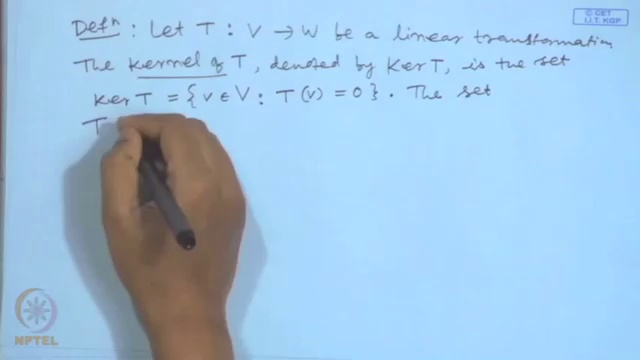 © CET
I.I.T. KGP
Defn : Let T : V → W be a linear transformation
The kernel of T, denoted by Ker T, is the set
Ker T = { v ∈ V : T(v) = 0 } . The set
T
NPTEL